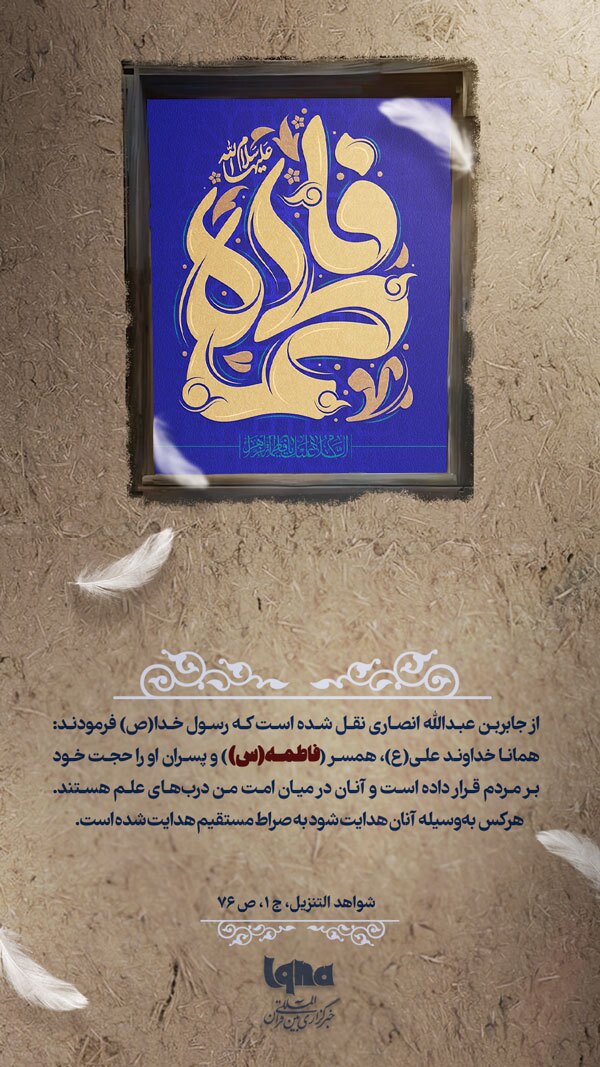 فاطمه
علیها سلام الله
السلام علیک یا فاطمة الزهرا
از جابربن عبدالله انصاری نقل شده است که رسول خدا(ص) فرمودند:
همانا خداوند علی(ع)، همسر (فاطمــه(س)) و پسران او را حجت خود
بر مردم قرار داده است و آنان در میان امت من درب‌های علم هستند.
هرکس به‌وسیله آنان هدایت شود به صراط مستقیم هدایت شده است.
شواهد التنزیل، ج ۱، ص ۷۶
Iqna
خبرگزاری بین المللی قرآن